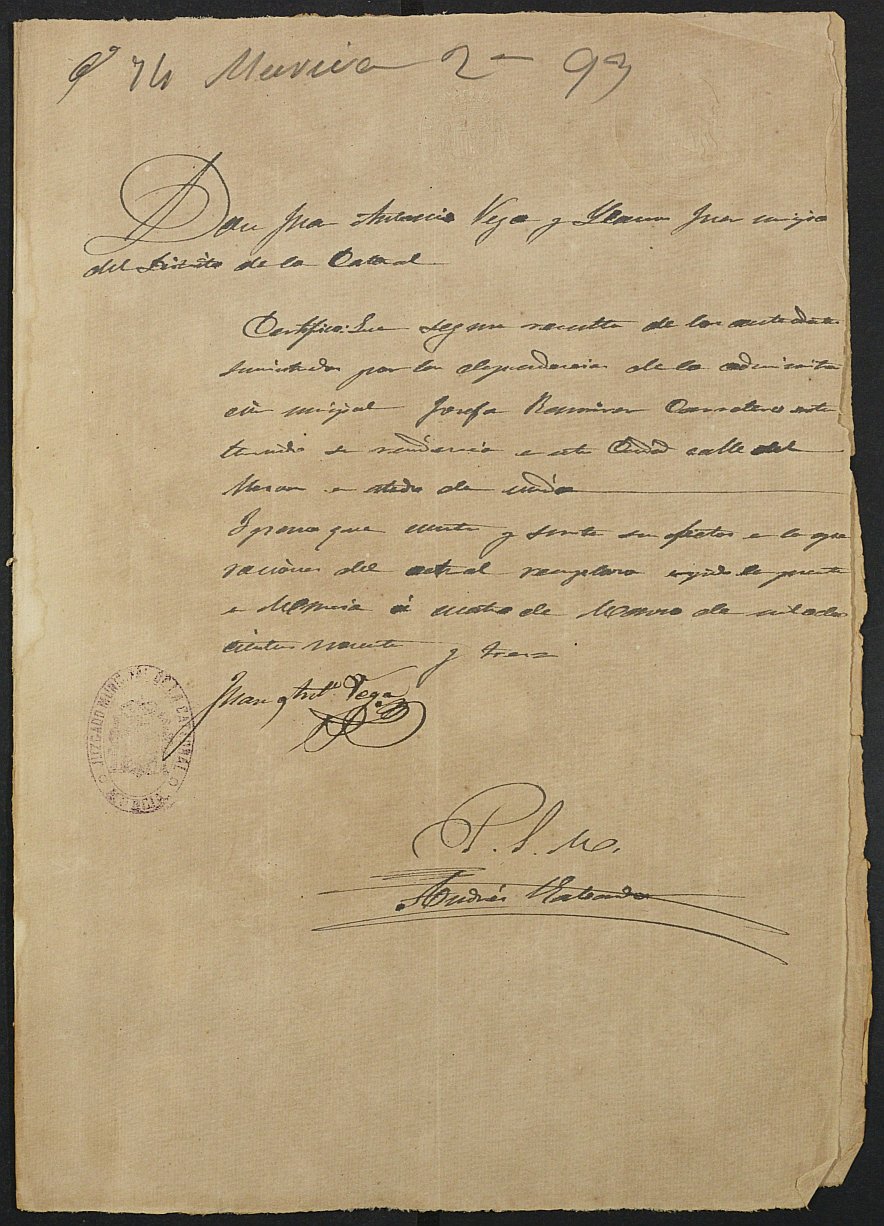 74 Murcia 2ª 93
Don Juan Antonio Vega y Juez municipal
del Distrito de la Catedral
Certifico: Que segun resulta de los antecedentes
suministrados por las dependencias de la administra
cion municipal Josefa Ramirez Carretero
tenido su residencia en esta Ciudad calle del
Meson en estado de viuda
Y para que conste y surta sus efectos en las ope
raciones del actual reemplazo expido la presente
en Murcia á cuatro de Marzo de mil ocho
cientos noventa y tres
Juan Antº Vega
JUZGADO MUNICIPAL DE LA CATEDRAL
MURCIA
P. S. M.
Andrés